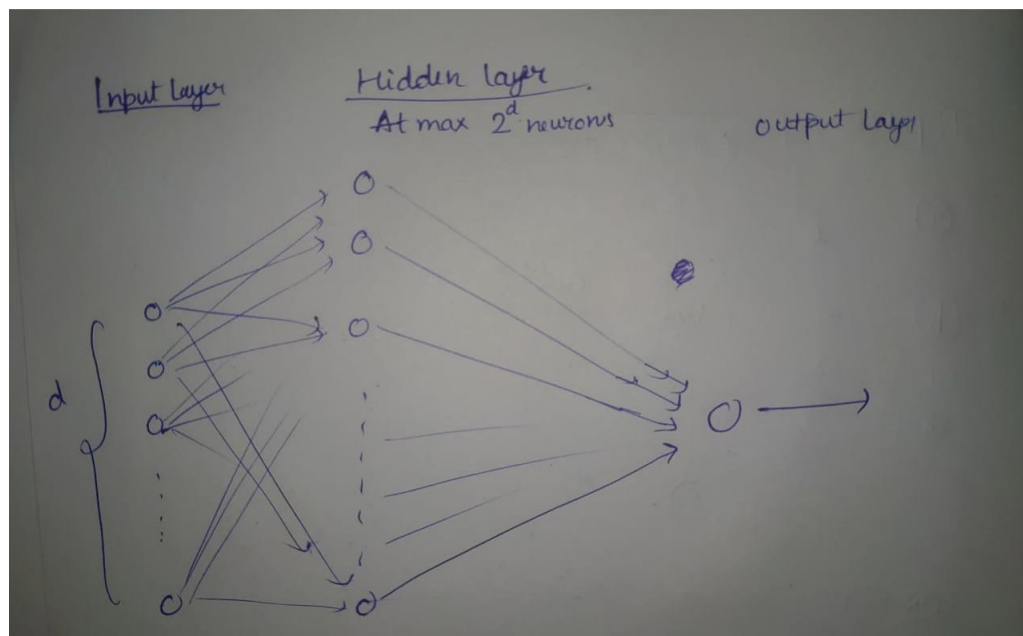 Input Layer
Hidden layer
At max 2^d neurons
output Layer
d